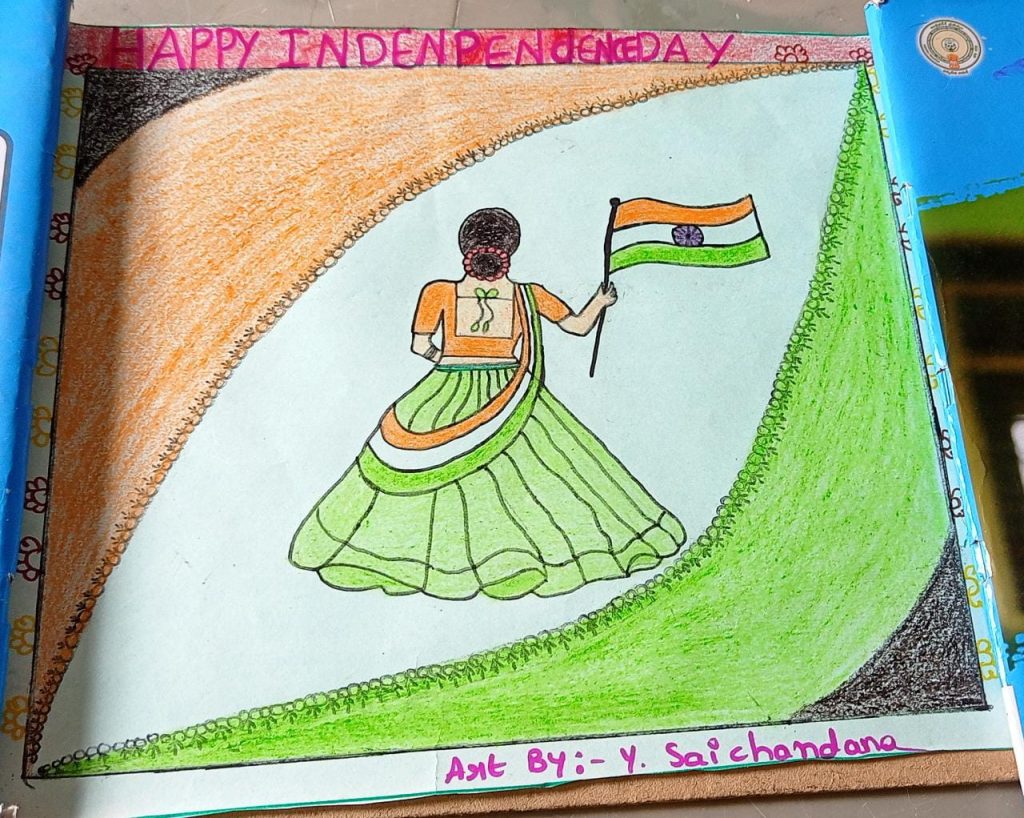 HAPPY INDENPENDENCE DAY
Art By:- Y. Saichandana